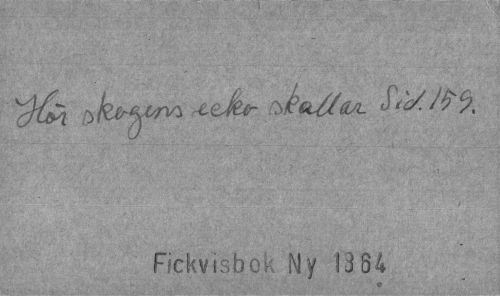 Hör skogens ecko skallar Sid. 159.
Fickvisbok Ny 1864